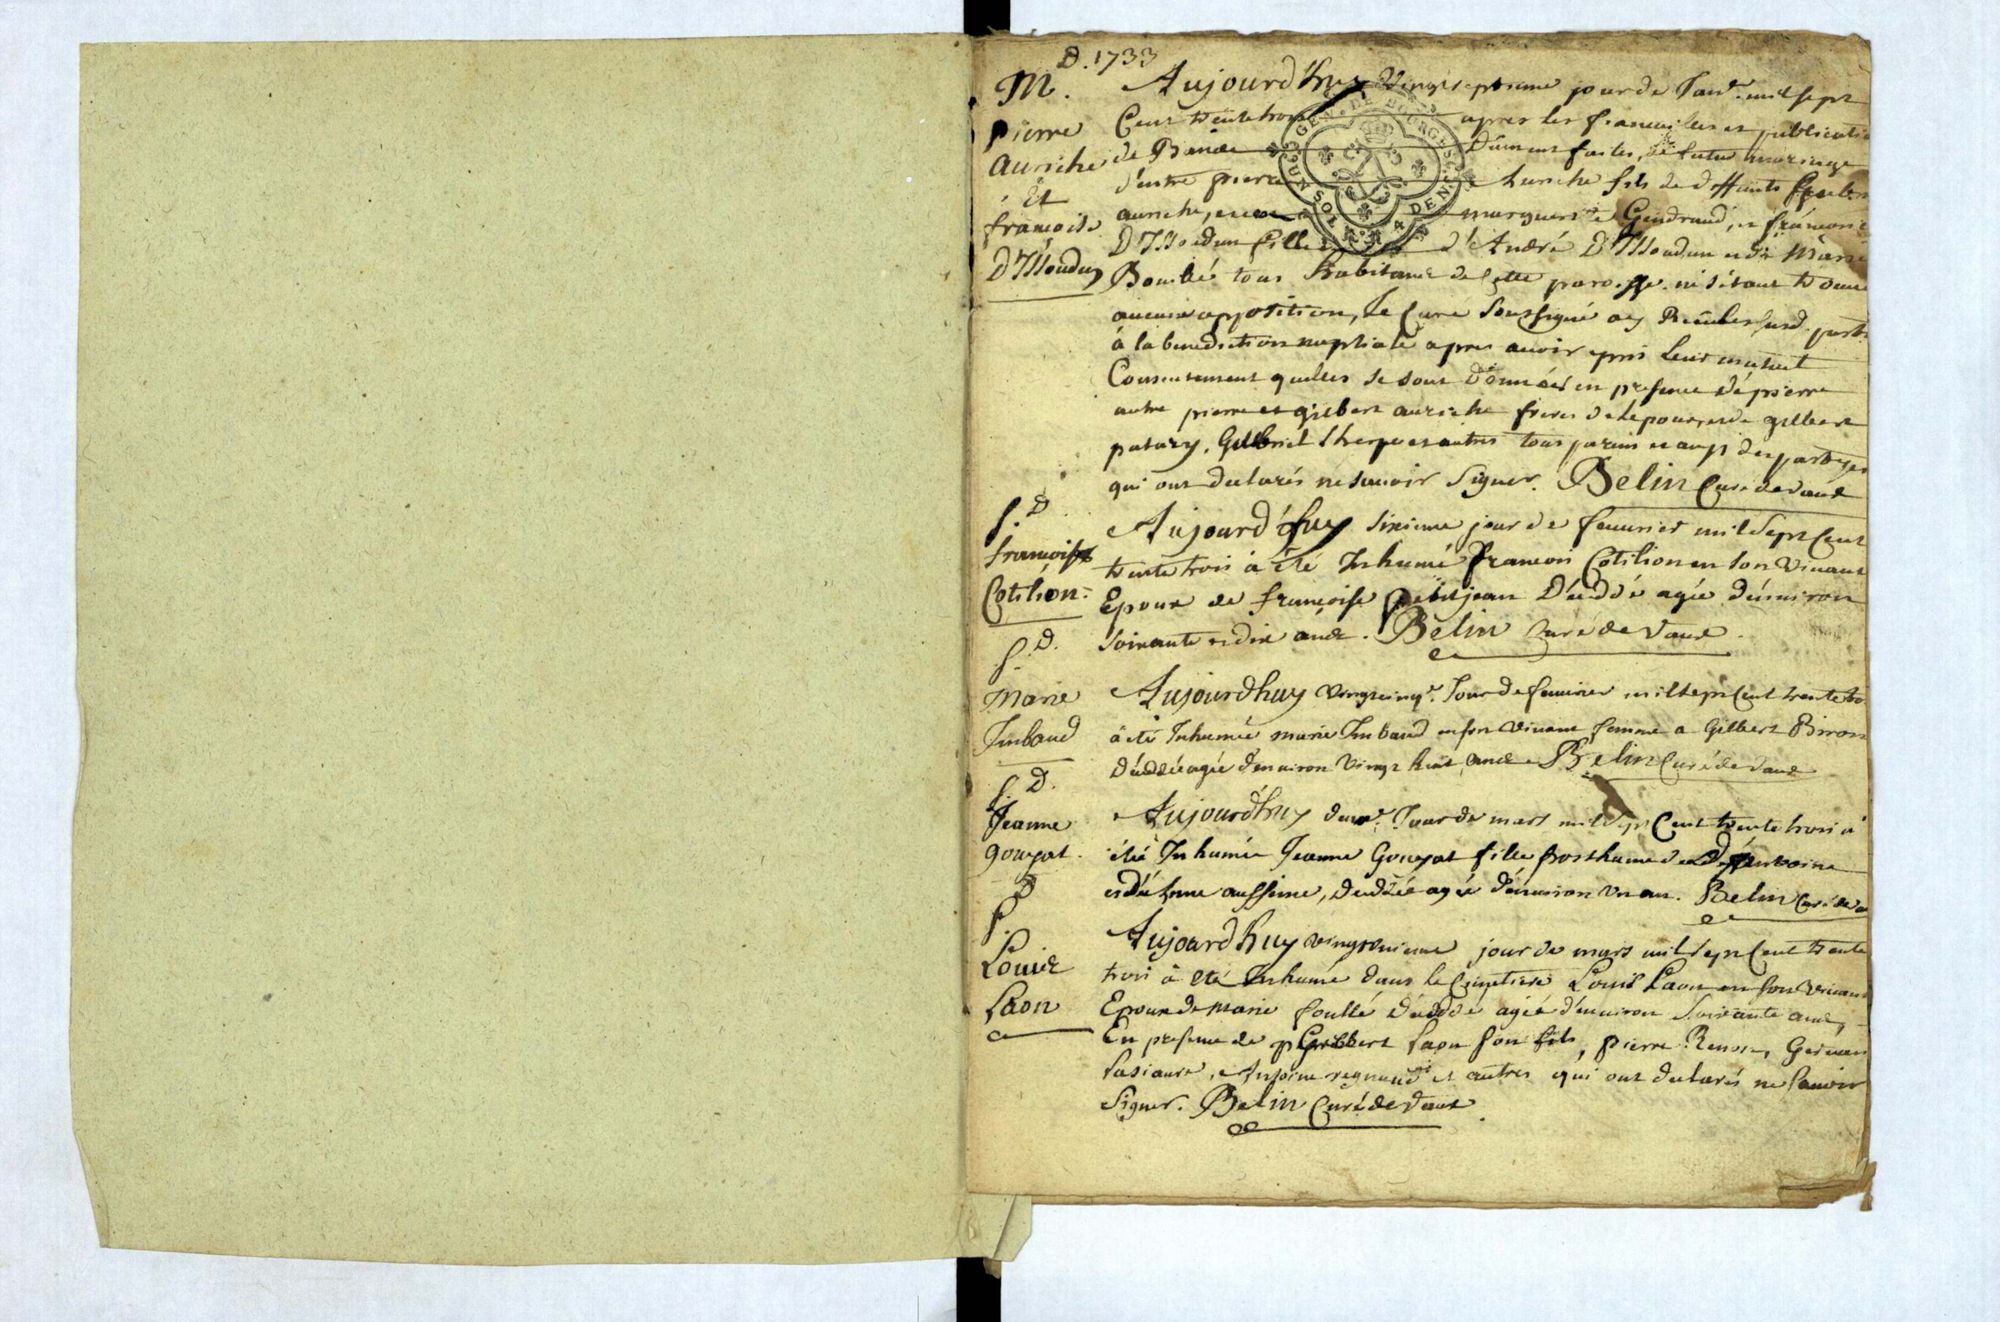 D. 1733
M.
pierre
auriche
Et
françoise
D'Issoudun
Aujourd'huy vingtseptieme jour de Janv. mil sept
Cent trente trois apres les fiancailles et publications
de Bancs Düment faites, de futur mariage
d'entre pierre Auriche fils de deffunts
auriche, et de marguerite Gendraud, et françoise
D'Issoudun fille d'André D'Issoudun et de Marie
tous habitans de Cette paroisse ne s'etant trouvé
aucune opposition, Je Curé Soussigné ay
à la benediction nuptiale apres avoir pris leur mutuel
Consentement quelles se sont données en presence de pierre
autre pierre et gilbert auriche freres de lepoux, et de gilbert
et autres tous parens et amys des partyes
qui ont declarés ne scavoir Signer. Belin Curé de Vaux
S. D.
françoise
Cotilion
Aujourd'huy sixieme jour de feuvrier mil Sept Cent
trente trois a été Inhumé francois Cotilion en son vivant
Epoux de françoise petitjean Décédé agée d'environ
soixante et dix ands. Belin Curé de Vaux.
S. D.
Marie
Imbaud
Aujourdhuy vingtcinq.e Jour de feuvrier mil sept Cent trente
à été Inhumée marie Imbaud en son vivant femme a Gilbert Biron
Décédée agée d'environ vingt huit ands Belin Curé de Vaux
S. D.
Jeanne
gouzat
Aujourd'huy Jour de mars mil sept Cent trente trois a
été Inhumée Jeanne Gouzat fille posthume de Antoine
et d'étienne aussime, Decedée agée d'environ un an. Belin Curé de
D
S.
Louis
Laon
Aujourd'huy jour de mars mil sept Cent trente
trois à été Inhumé dans le Cimetiere Louis Laon en son vivant
Epoux de marie foullé Décédé agée d'environ Soixante ans,
En presence de Gilbert Laon son fils, pierre Renon, German
Antoine regnaud et autres qui ont declarés ne Scavoir
Signer. Belin Curé de Vaux.
GEN. DE BOURGES
DEN.